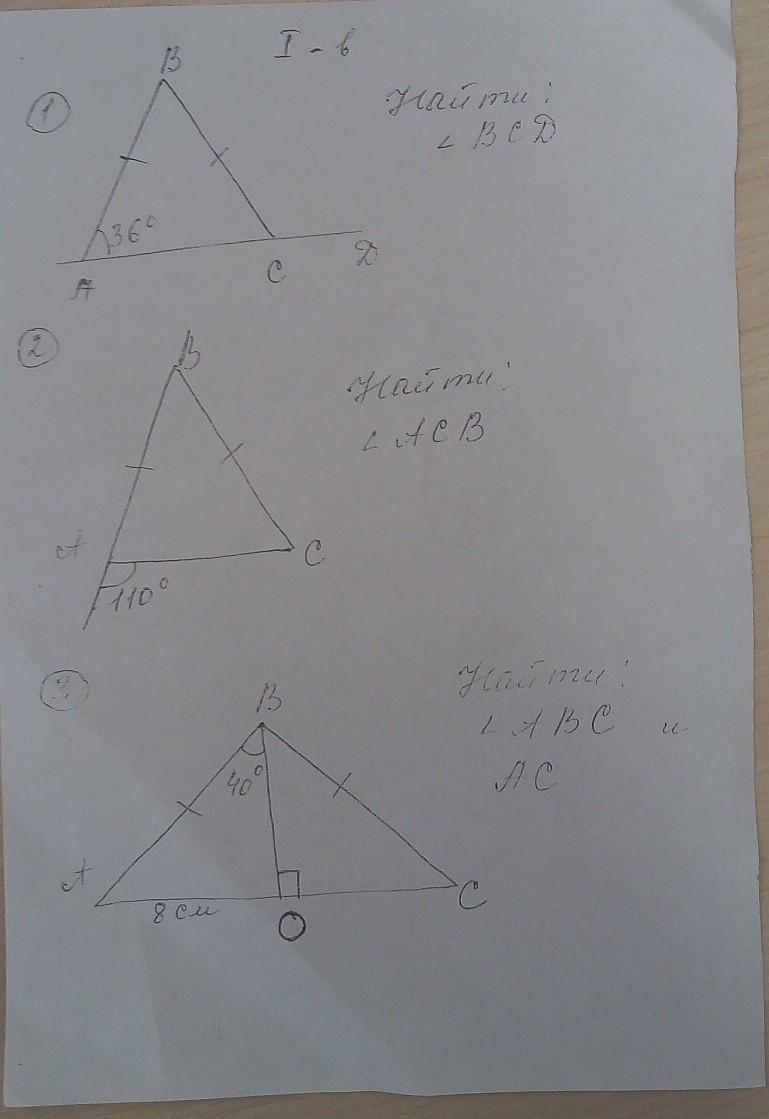 I - в
B
1
Найти:
∠ BCD
36°
A
C
D
2
B
Найти:
∠ ACB
A
C
110°
3
Найти:
∠ ABC и
AC
B
40°
A
8 см
O
C